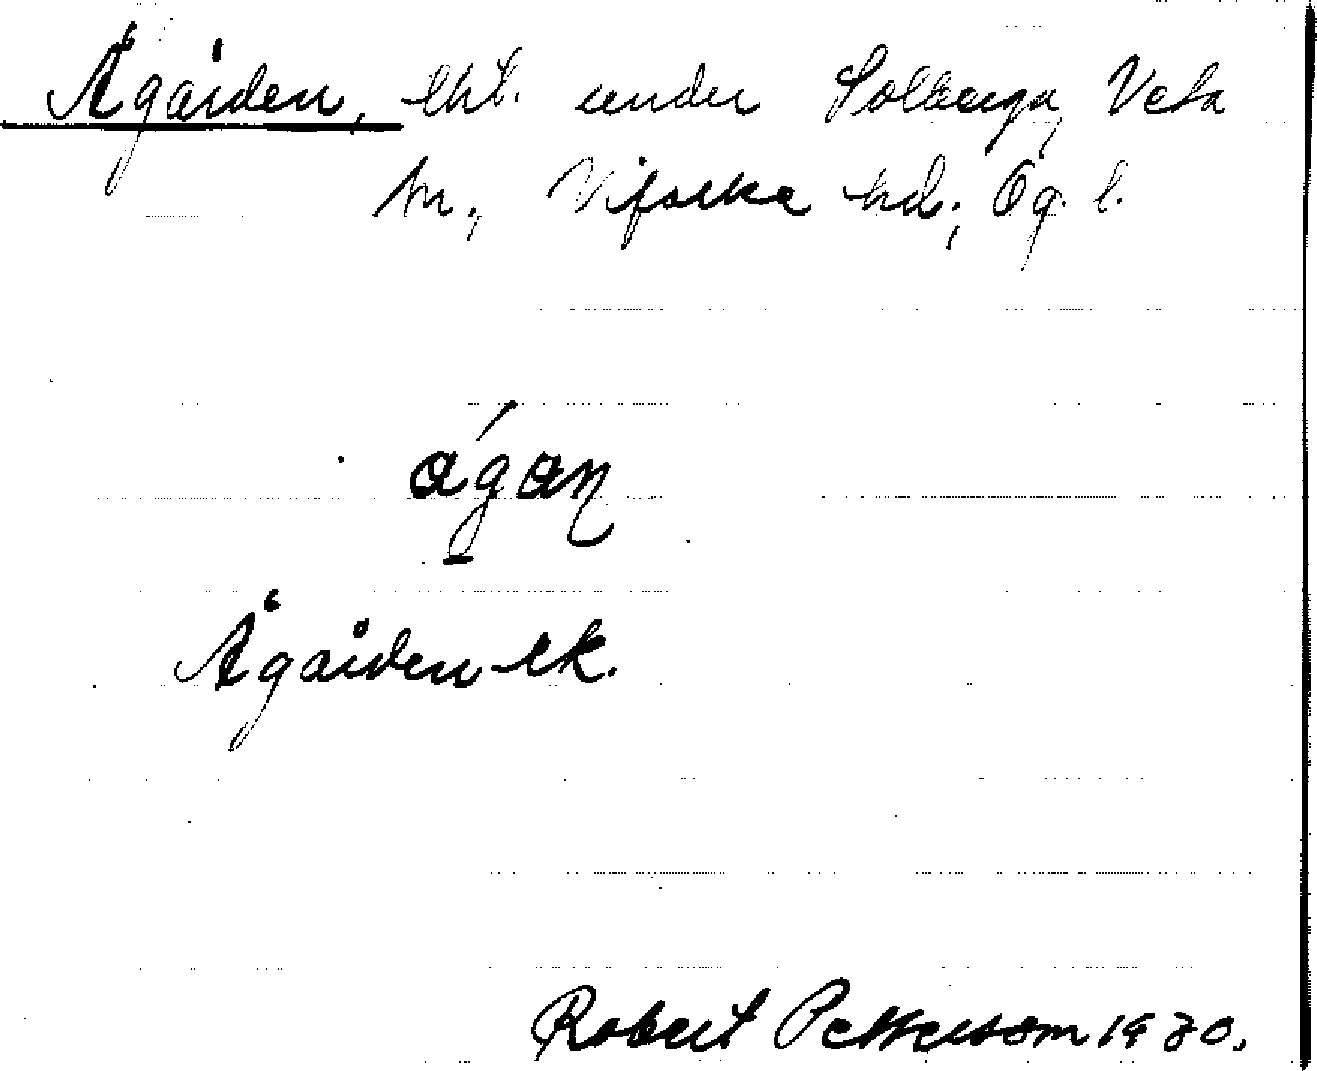 Ågården, lht. under Solberga, Veta
sn., Vifolka hd., Ög. l.
ágaɳ
Ågården ek.
Robert Pettersson 1930.